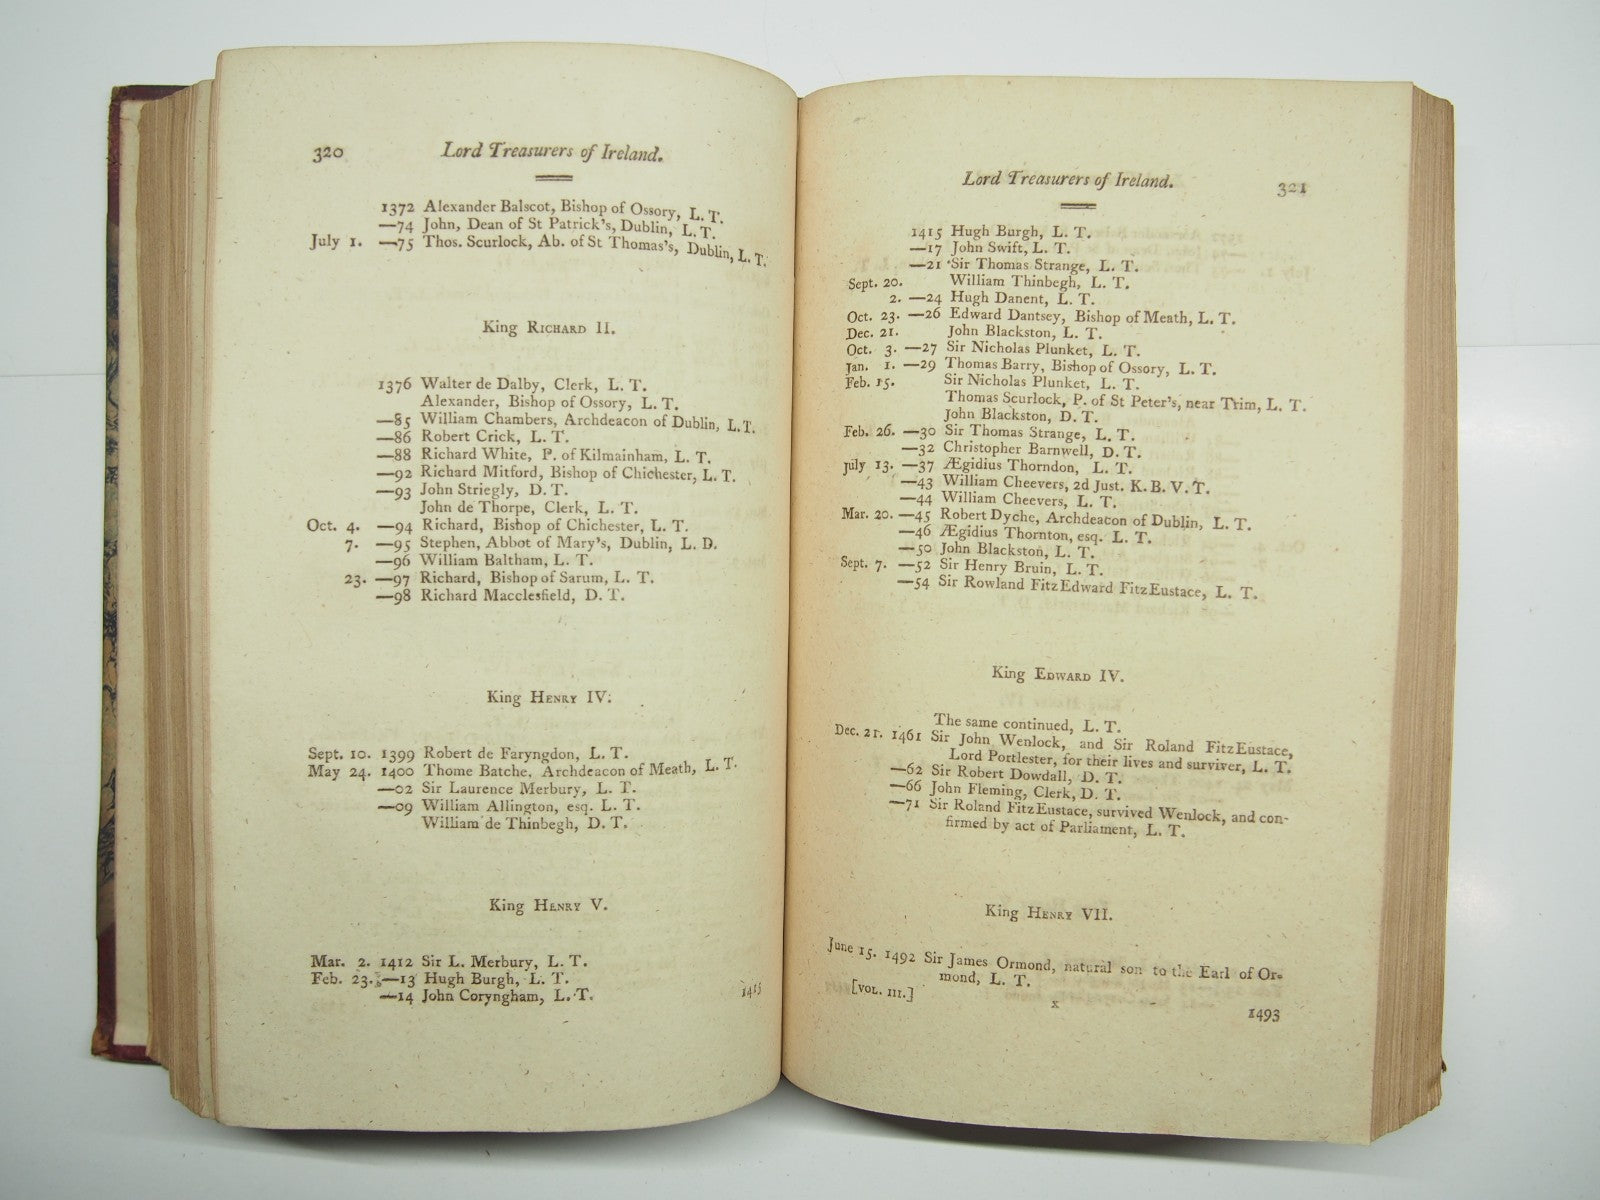 320 Lord Treasurers of Ireland.
1372 Alexander Balscot, Bishop of Ossory, L. T.
—74 John, Dean of St Patrick's, Dublin, L. T.
July 1. —75 Thos. Scurlock, Ab. of St Thomas's, Dublin, L. T.
King RICHARD II.
1376 Walter de Dalby, Clerk, L. T.
Alexander, Bishop of Ossory, L. T.
—85 William Chambers, Archdeacon of Dublin, L. T.
—86 Robert Crick, L. T.
—88 Richard White, P. of Kilmainham, L. T.
—92 Richard Mitford, Bishop of Chichester, L. T.
—93 John Striegly, D. T.
John de Thorpe, Clerk, L. T.
Oct. 4. —94 Richard, Bishop of Chichester, L. T.
7. —95 Stephen, Abbot of Mary's, Dublin, L. D.
—96 William Baltham, L. T.
23. —97 Richard, Bishop of Sarum, L. T.
—98 Richard Macclesfield, D. T.
King HENRY IV.
Sept. 10. 1399 Robert de Faryngdon, L. T.
May 24. 1400 Thome Batche, Archdeacon of Meath, L. T.
—02 Sir Laurence Merbury, L. T.
—09 William Allington, esq. L. T.
William de Thinbegh, D. T.
King HENRY V.
Mar. 2. 1412 Sir L. Merbury, L. T.
Feb. 23. —13 Hugh Burgh, L. T.
—14 John Coryngham, L. T.
1415
Lord Treasurers of Ireland. 321
1415 Hugh Burgh, L. T.
—17 John Swift, L. T.
—21 Sir Thomas Strange, L. T.
Sept. 20. William Thinbegh, L. T.
2. —24 Hugh Danent, L. T.
Oct. 23. —26 Edward Dantsey, Bishop of Meath, L. T.
Dec. 21. John Blackston, L. T.
Oct. 3. —27 Sir Nicholas Plunket, L. T.
Jan. 1. —29 Thomas Barry, Bishop of Ossory, L. T.
Feb. 15. Sir Nicholas Plunket, L. T.
Thomas Scurlock, P. of St Peter's, near Trim, L. T.
John Blackston, D. T.
Feb. 26. —30 Sir Thomas Strange, L. T.
—32 Christopher Barnwell, D. T.
July 13. —37 Ægidius Thorndon, L. T.
—43 William Cheevers, 2d Just. K. B. V. T.
—44 William Cheevers, L. T.
Mar. 20. —45 Robert Dyche, Archdeacon of Dublin, L. T.
—46 Ægidius Thornton, esq. L. T.
—50 John Blackston, L. T.
Sept. 7. —52 Sir Henry Bruin, L. T.
—54 Sir Rowland FitzEdward FitzEustace, L. T.
King EDWARD IV.
The same continued, L. T.
Dec. 21. 1461 Sir John Wenlock, and Sir Roland FitzEustace,
Lord Portlester, for their lives and surviver, L. T.
—62 Sir Robert Dowdall, D. T.
—66 John Fleming, Clerk, D. T.
—71 Sir Roland FitzEustace, survived Wenlock, and con-
firmed by act of Parliament, L. T.
King HENRY VII.
June 15. 1492 Sir James Ormond, natural son to the Earl of Or-
mond, L. T.
[VOL. III.] x
1493